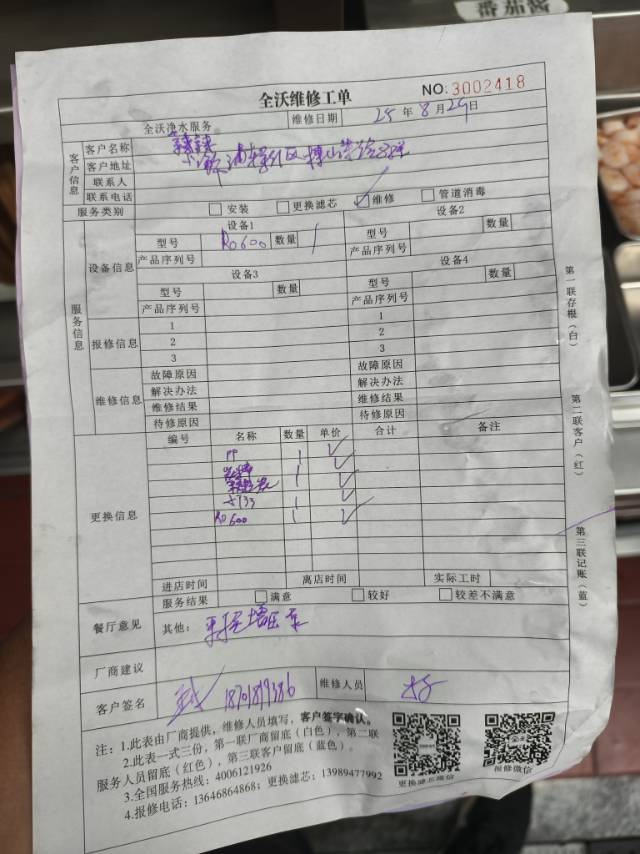 番茄酱
全沃维修工单
NO: 3002418
全沃净水服务
维修日期 25 年 8 月 29 日
客户信息
客户名称
客户地址
联系人
联系电话
服务类别 安装 更换滤芯 维修 管道消毒
服务信息
设备信息
设备1 设备2
型号 RO600 数量 1 型号 数量
产品序列号 产品序列号
设备3 设备4
型号 数量 型号 数量
产品序列号 产品序列号
报修信息
1 1
2 2
3 3
维修信息
故障原因 故障原因
解决办法 解决办法
维修结果 维修结果
待修原因 待修原因
更换信息
编号 名称 数量 单价 合计 备注
PP 1
1
1
T33 1
RO600 1
进店时间 离店时间 实际工时
餐厅意见
服务结果 满意 较好 较差不满意
其他: 增压泵
厂商建议
客户签名 18701819386 维修人员
注: 1.此表由厂商提供，维修人员填写，客户签字确认。
2.此表一式三份，第一联厂商留底（白色），第二联
服务人员留底（红色），第三联客户留底（蓝色）。
3.全国服务热线: 4006121926
4.报修电话: 13646864868; 更换滤芯: 13989477992
更换滤芯微信
报修微信
第一联存根（白）
第二联客户（红）
第三联记账（蓝）